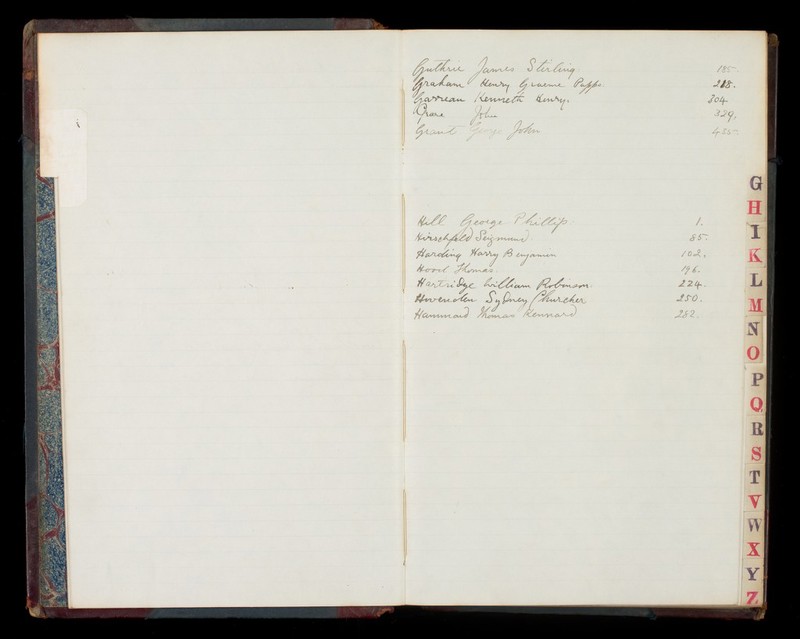 Guthrie James Stirling. 185
Graham Henry Graeme Pupps. 218.
Garreau Kenneth Henry. 304.
John 329.
Grant George John
Hill George Phillip 1.
Hirschfeld Seigmund. 85.
Harding Harry Benjamin 102.
Hood Thomas. 196.
Hartridge William Robinson. 224.
Hovenden Sydney Churcher 250.
Hammond Thomas Kennard 282.
G
H
I
K
L
M
N
O
P
Q
R
S
T
V
W
X
Y
Z